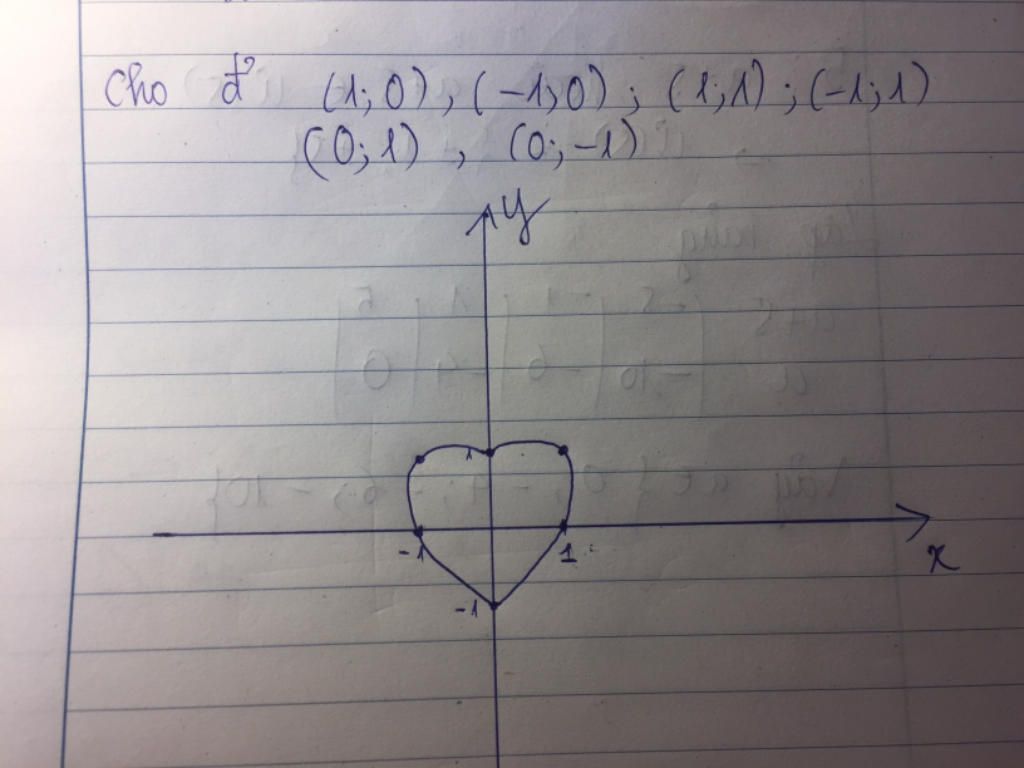 Cho đ² (1; 0), (-1; 0); (1; 1); (-1; 1)
(0; 1), (0; -1)
y
1
-1
1
x
-1